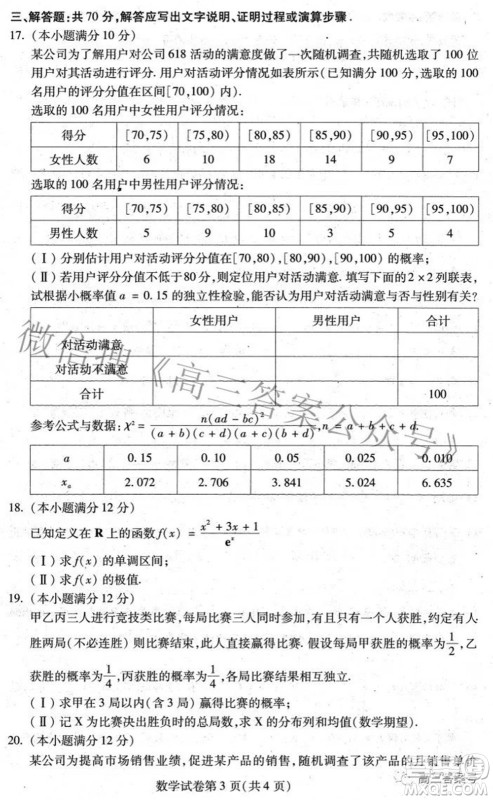 三、解答题:共 70 分,解答应写出文字说明、证明过程或演算步骤.
17. (本小题满分 10 分)
某公司为了解用户对公司 618 活动的满意度做了一次随机调查,共随机选取了 100 位
用户对其活动进行评分. 用户对活动评分情况如表所示(已知满分 100 分,选取的 100
名用户的评分分值在区间[70,100) 内).
选取的 100 名用户中女性用户评分情况:
得分 [70,75) [75,80) [80,85) [85,90) [90,95) [95,100)
女性人数 6 10 18 14 9 7
选取的 100 名用户中男性用户评分情况:
得分 [70,75) [75,80) [80,85) [85,90) [90,95) [95,100)
男性人数 5 9 10 3 5 4
(Ⅰ)分别估计用户对活动评分分值在[70,80),[80,90),[90,100)的概率;
(Ⅱ)若用户评分分值不低于80分,则定位用户对活动满意. 填写下面的 2×2 列联表,
试根据小概率值 a = 0.15 的独立性检验,能否认为用户对活动满意与否与性别有关?
女性用户 男性用户 合计
对活动满意
对活动不满意
合计 100
参考公式与数据: χ² = n(ad - bc)² / (a + b)(c + d)(a + c)(b + d), n = a + b + c + d.
a 0.15 0.10 0.05 0.025 0.010
xₐ 2.072 2.706 3.841 5.024 6.635
18. (本小题满分 12 分)
已知定义在 R 上的函数 f(x) = (x² + 3x + 1) / eˣ
(Ⅰ)求 f(x) 的单调区间;
(Ⅱ)求 f(x) 的极值.
19. (本小题满分 12 分)
甲乙丙三人进行竞技类比赛,每局比赛三人同时参加,有且只有一个人获胜,约定有人
胜两局(不必连胜)则比赛结束,此人直接赢得比赛. 假设每局甲获胜的概率为 1/2,乙
获胜的概率为 1/4,丙获胜的概率为 1/4,各局比赛结果相互独立.
(Ⅰ)求甲在 3 局以内(含 3 局)赢得比赛的概率;
(Ⅱ)记 X 为比赛决出胜负时的总局数,求 X 的分布列和均值(数学期望).
20. (本小题满分 12 分)
某公司为提高市场销售业绩,促进某产品的销售,随机调查了该产品的月销售单价
数学试卷第 3 页(共 4 页)
微信搜《高三答案公众号》
高三答案号